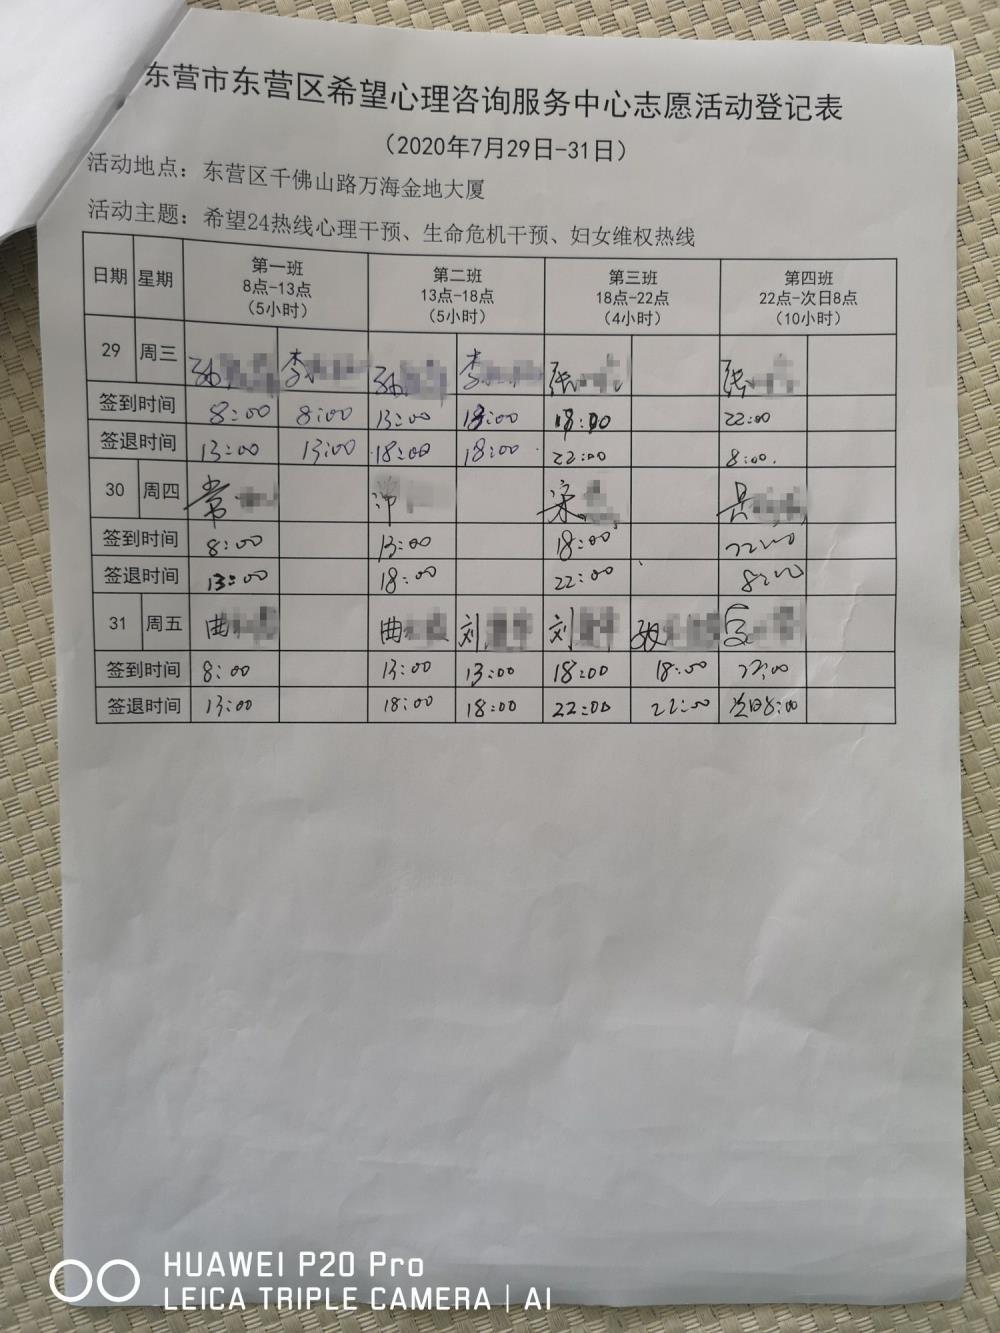 东营市东营区希望心理咨询服务中心志愿活动登记表
（2020年7月29日-31日）
活动地点：东营区千佛山路万海金地大厦
活动主题：希望24热线心理干预、生命危机干预、妇女维权热线
日期 星期 第一班 8点-13点 （5小时） 第二班 13点-18点 （5小时） 第三班 18点-22点 （4小时） 第四班 22点-次日8点 （10小时）
29 周三 孙 李 孙 李 张 张
签到时间 8:00 8:00 13:00 13:00 18:00 22:00
签退时间 13:00 13:00 18:00 18:00 22:00 8:00.
30 周四 常 宋
签到时间 8:00 13:00 18:00 22:00
签退时间 13:00 18:00 22:00 8:00
31 周五 曲 曲 刘 刘
签到时间 8:00 13:00 13:00 18:00 18:00 22:00
签退时间 13:00 18:00 18:00 22:00 22:00 次日8:00
HUAWEI P20 Pro
LEICA TRIPLE CAMERA | AI